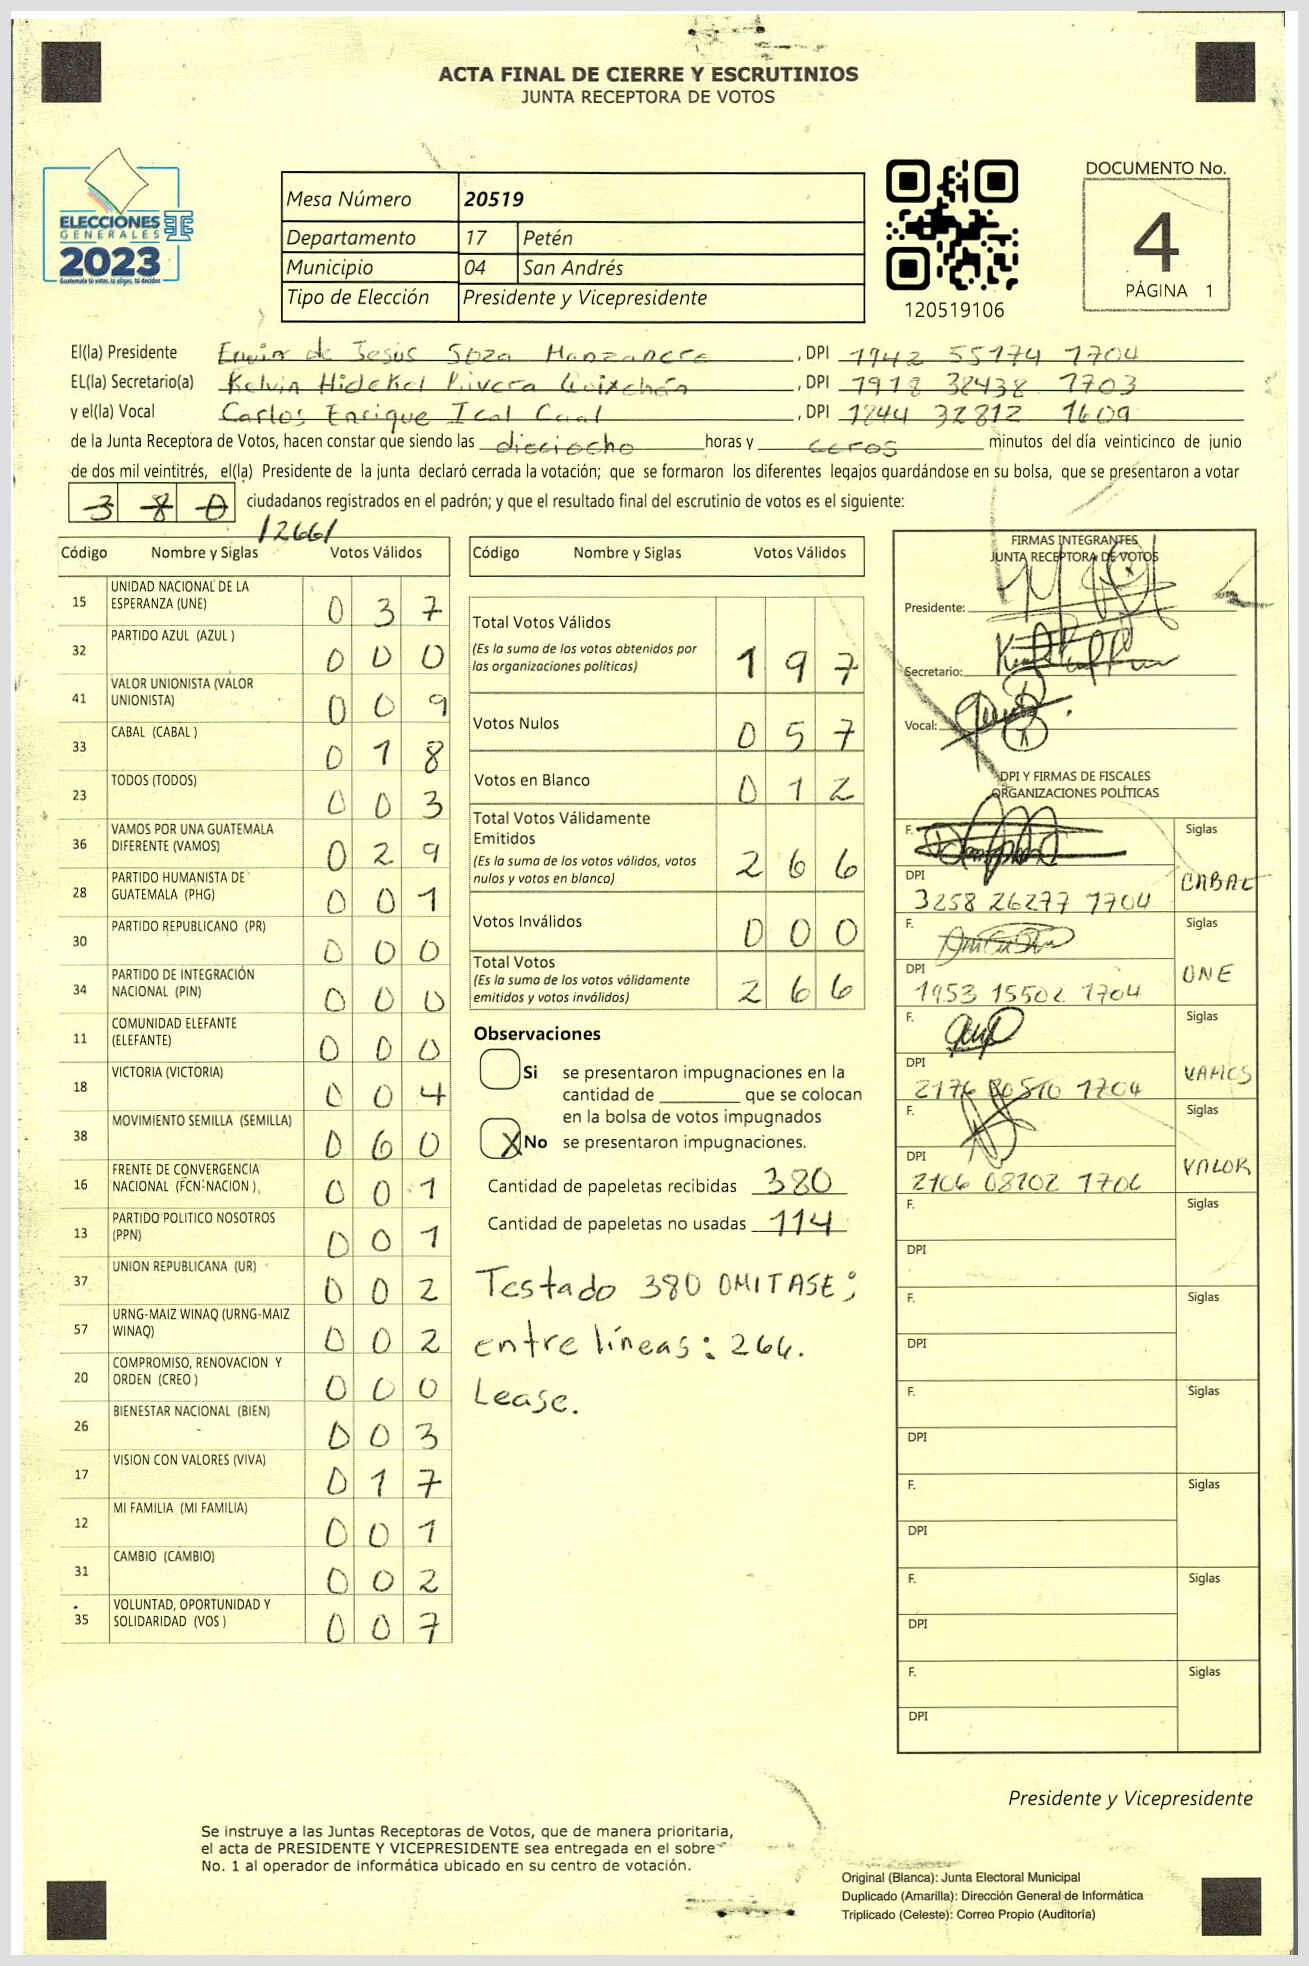 ACTA FINAL DE CIERRE Y ESCRUTINIOS
JUNTA RECEPTORA DE VOTOS
ELECCIONES
GENERALES
2023
Guatemala tú votas, tú eliges, tú decides
Mesa Número 20519
Departamento 17 Petén
Municipio 04 San Andrés
Tipo de Elección Presidente y Vicepresidente
120519106
DOCUMENTO No.
4
PÁGINA 1
El(la) Presidente Erwin de Jesús Soza Manzanero, DPI 1942 55174 1704
EL(la) Secretario(a) Kelvin Hidekel Rivera Quixchán, DPI 1918 38438 1703
y el(la) Vocal Carlos Enrique Ical Caal, DPI 1844 32812 1609
de la Junta Receptora de Votos, hacen constar que siendo las dieciocho horas y ceros minutos del día veinticinco de junio
de dos mil veintitrés, el(la) Presidente de la junta declaró cerrada la votación; que se formaron los diferentes legajos guardándose en su bolsa, que se presentaron a votar
3 8 0 ciudadanos registrados en el padrón; y que el resultado final del escrutinio de votos es el siguiente:
/266/
Código Nombre y Siglas Votos Válidos
15 UNIDAD NACIONAL DE LA ESPERANZA (UNE) 0 3 7
32 PARTIDO AZUL (AZUL ) 0 0 0
41 VALOR UNIONISTA (VALOR UNIONISTA) 0 0 9
33 CABAL (CABAL ) 0 1 8
23 TODOS (TODOS) 0 0 3
36 VAMOS POR UNA GUATEMALA DIFERENTE (VAMOS) 0 2 9
28 PARTIDO HUMANISTA DE GUATEMALA (PHG) 0 0 1
30 PARTIDO REPUBLICANO (PR) 0 0 0
34 PARTIDO DE INTEGRACIÓN NACIONAL (PIN) 0 0 0
11 COMUNIDAD ELEFANTE (ELEFANTE) 0 0 0
18 VICTORIA (VICTORIA) 0 0 4
38 MOVIMIENTO SEMILLA (SEMILLA) 0 6 0
16 FRENTE DE CONVERGENCIA NACIONAL (FCN-NACION ) 0 0 1
13 PARTIDO POLITICO NOSOTROS (PPN) 0 0 1
37 UNION REPUBLICANA (UR) 0 0 2
57 URNG-MAIZ WINAQ (URNG-MAIZ WINAQ) 0 0 2
20 COMPROMISO, RENOVACION Y ORDEN (CREO ) 0 0 0
26 BIENESTAR NACIONAL (BIEN) 0 0 3
17 VISION CON VALORES (VIVA) 0 1 7
12 MI FAMILIA (MI FAMILIA) 0 0 1
31 CAMBIO (CAMBIO) 0 0 2
35 VOLUNTAD, OPORTUNIDAD Y SOLIDARIDAD (VOS ) 0 0 7
Código Nombre y Siglas Votos Válidos
Total Votos Válidos
(Es la suma de los votos obtenidos por
las organizaciones políticas) 1 9 7
Votos Nulos 0 5 7
Votos en Blanco 0 1 2
Total Votos Válidamente
Emitidos
(Es la suma de los votos válidos, votos
nulos y votos en blanco) 2 6 6
Votos Inválidos 0 0 0
Total Votos
(Es la suma de los votos válidamente
emitidos y votos inválidos) 2 6 6
Observaciones
Si se presentaron impugnaciones en la
cantidad de ________ que se colocan
en la bolsa de votos impugnados
X No se presentaron impugnaciones.
Cantidad de papeletas recibidas 380
Cantidad de papeletas no usadas 114
Testado 380 OMITASE;
entre líneas: 266.
Lease.
FIRMAS INTEGRANTES
JUNTA RECEPTORA DE VOTOS
Presidente:
Secretario:
Vocal:
DPI Y FIRMAS DE FISCALES
ORGANIZACIONES POLÍTICAS
F. Siglas
DPI CABAL
3258 26277 1704
F. Siglas
DPI UNE
1953 15502 1704
F. Siglas
DPI VAMOS
2176 80510 1704
F. Siglas
DPI VALOR
2106 08202 1706
F. Siglas
DPI
F. Siglas
DPI
F. Siglas
DPI
F. Siglas
DPI
F. Siglas
DPI
F. Siglas
DPI
Presidente y Vicepresidente
Se instruye a las Juntas Receptoras de Votos, que de manera prioritaria,
el acta de PRESIDENTE Y VICEPRESIDENTE sea entregada en el sobre
No. 1 al operador de informática ubicado en su centro de votación.
Original (Blanca): Junta Electoral Municipal
Duplicado (Amarilla): Dirección General de Informática
Triplicado (Celeste): Correo Propio (Auditoría)